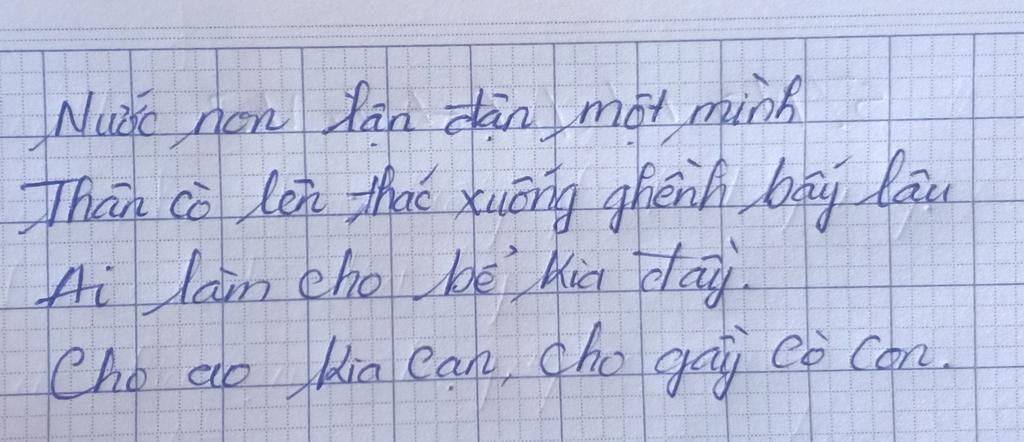 Nước non lận đận một mình
Thân cò lên thác xuống ghềnh bấy lâu
Ai làm cho bể kia đầy.
Cho ao kia cạn, cho gầy cò con.